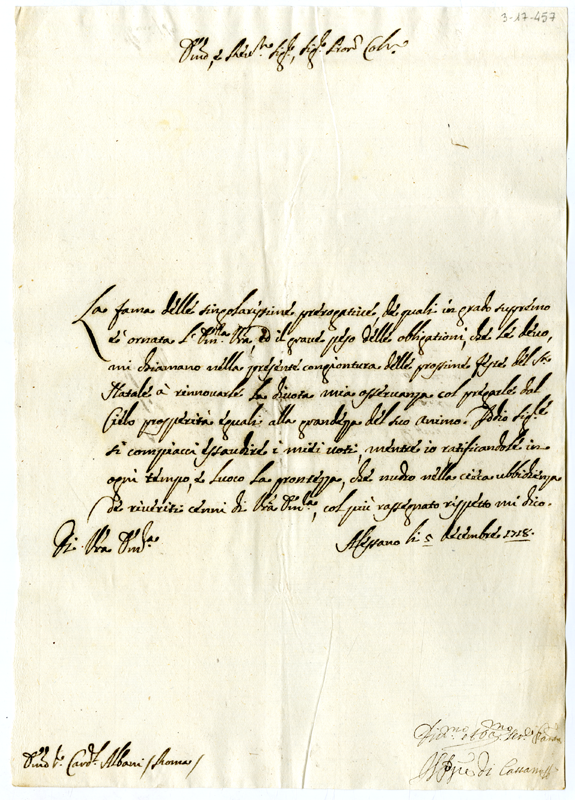 3-17-457
Em͞o, e Rev.mo Sig.re, Sig.re Pron͞ Col.mo
La fama delle singolarissime prerogative, de quali in grado supremo
è ornata l'Em.za V͞ra, ed il grave peso delle obligationi, che le devo,
mi chiamano nella presente congiontura delle prossime feste del S.to
Natale à rinnovarle la divota mia osservanza col pregarle dal
Cielo prosperità eguali alla grandezza del suo animo. Iddio Sig.re
si compiacci essaudire i miei voti, mentre io ratificandole in
ogni tempo, e luoco la prontezza, che nudro nella cieca ubbidienza
de riveriti cenni di V͞ra Em.za, col più rassegnato rispetto mi dico.
Di V͞ra Em.za
Alessano li 5 decembre 1718.
Em͞o Sr. Card.l Albani /Roma/
di